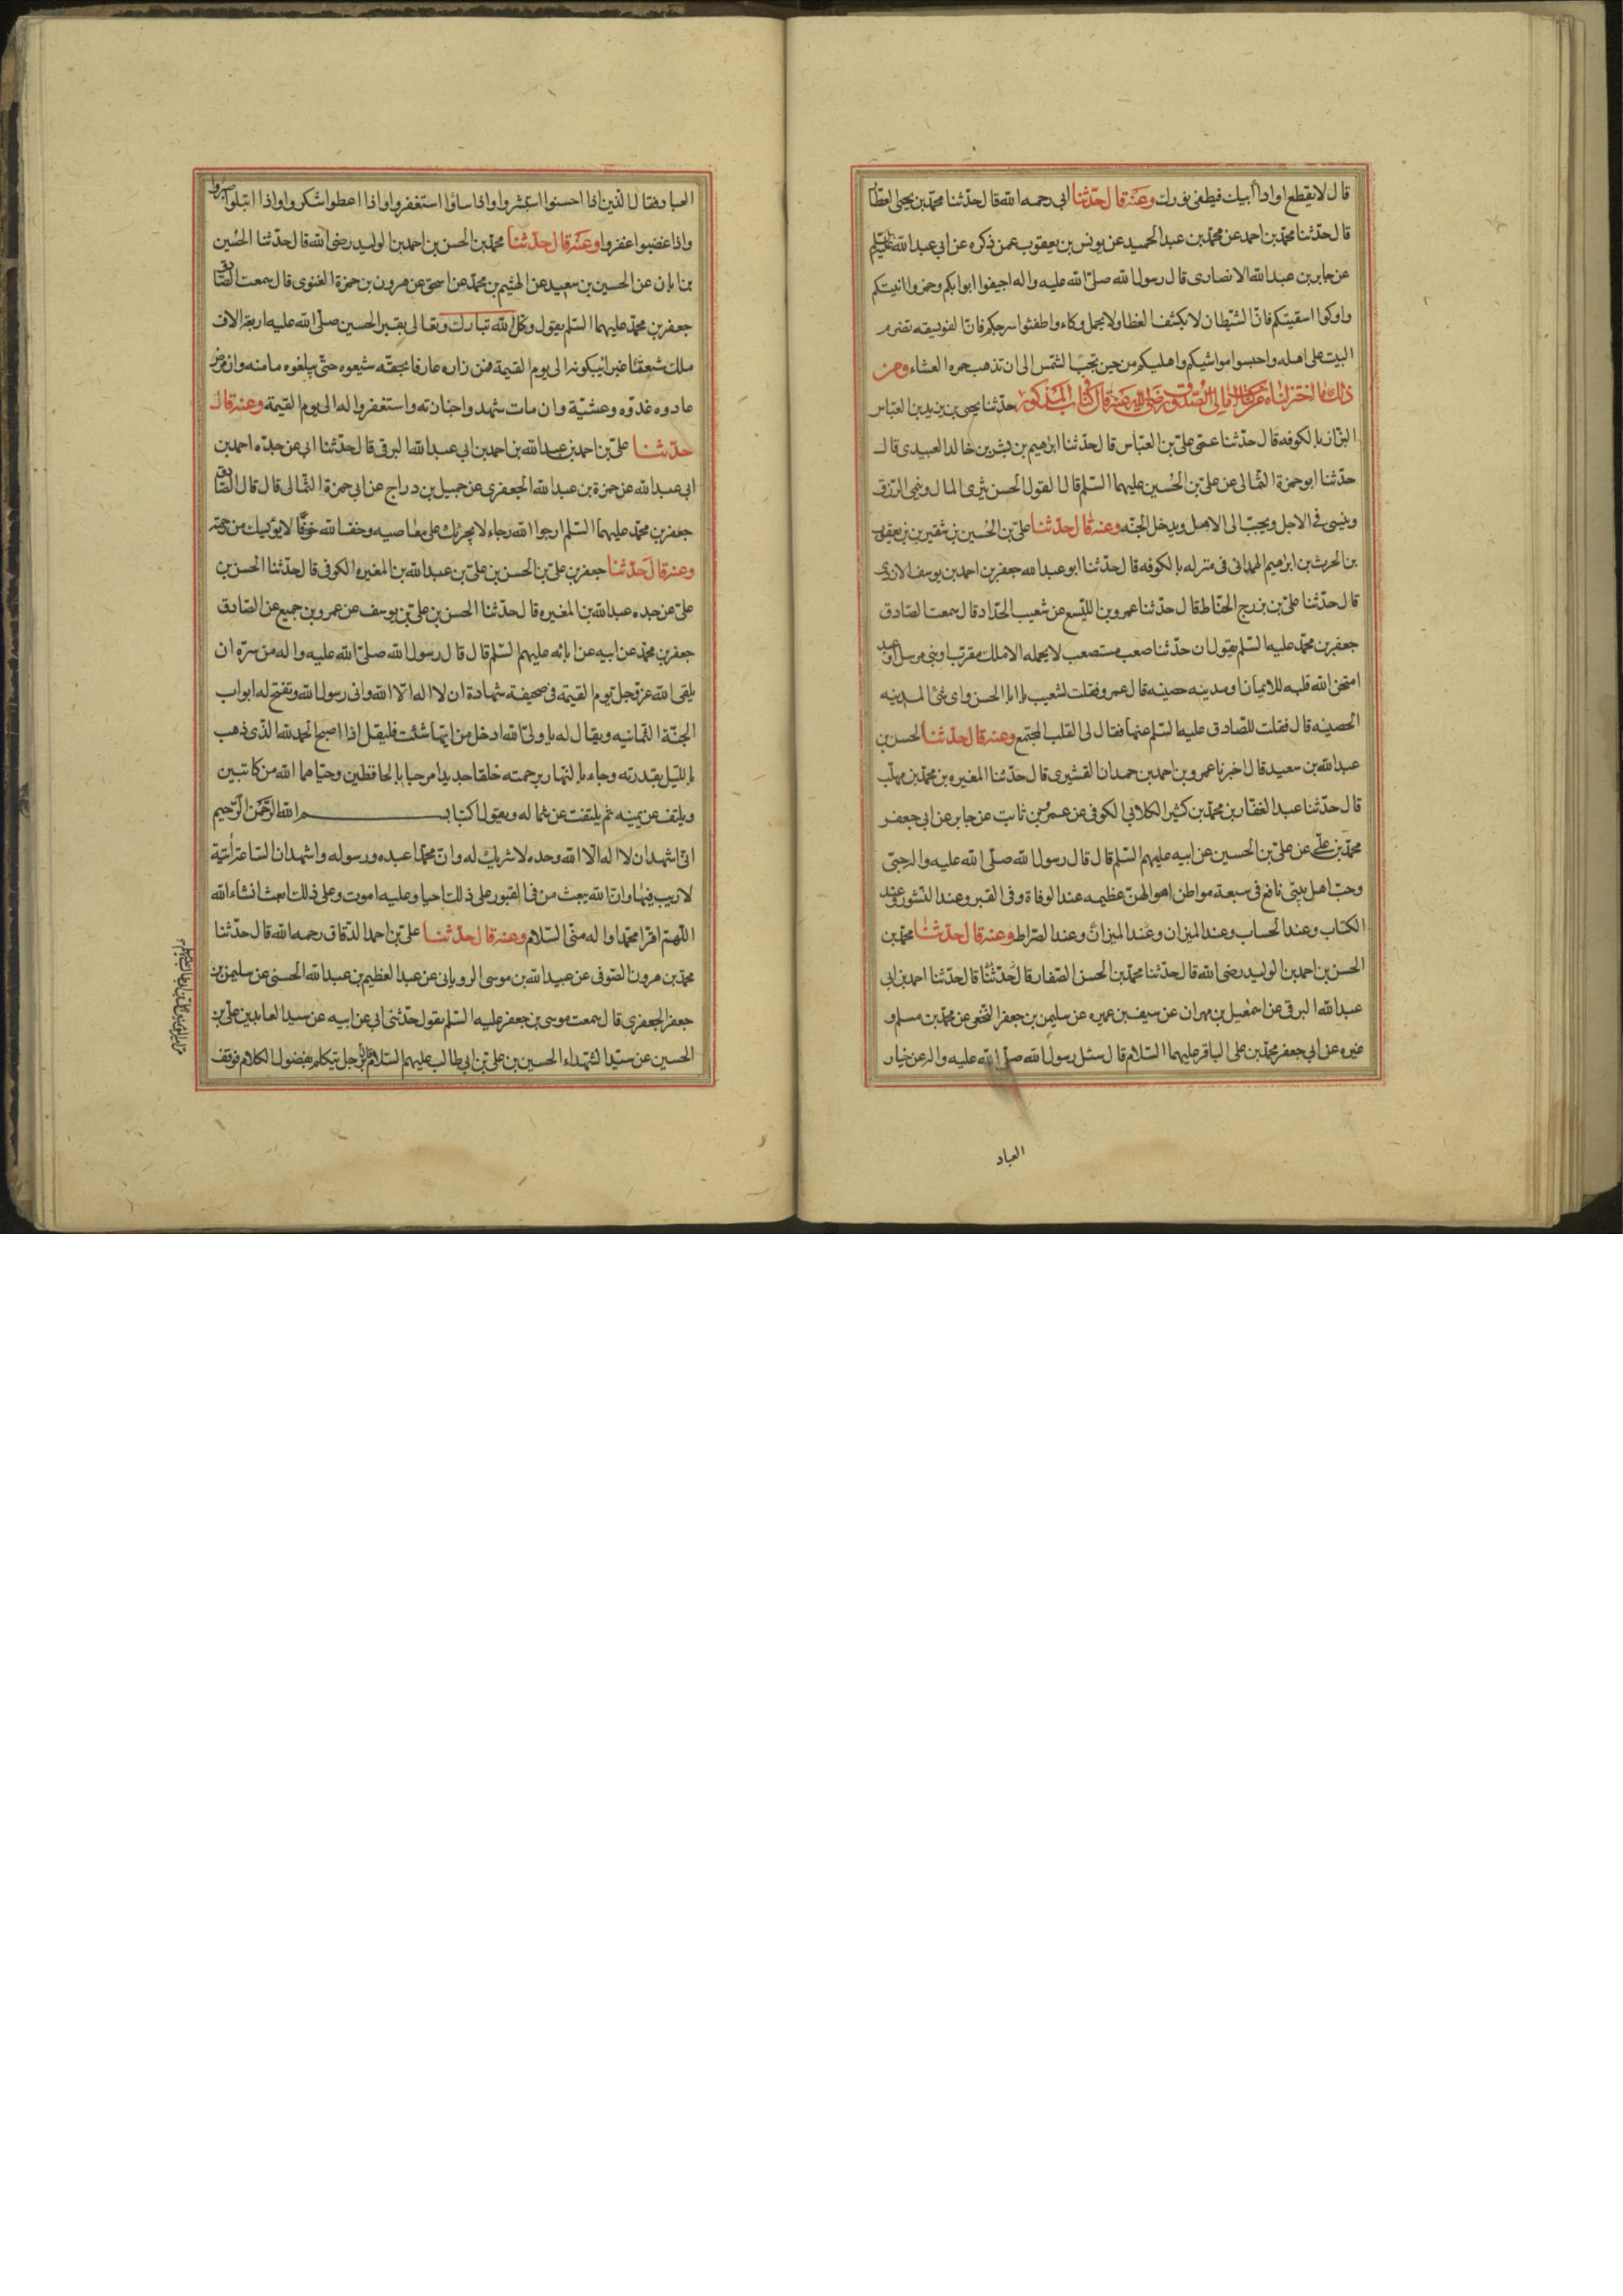 قال لا يقطع اوادا أبيك فيطفى نورك وعنه قال حدثنا ابى رحمه الله قال حدثنا محمد بن يحيى العطا
قال حدثنا محمد بن احمد عن محمد بن عبد الحميد عن يونس بن يعقوب عمن ذكره عن ابى عبد الله
عن جابر بن عبد الله الانصارى قال رسول الله صلى الله عليه واله اجيفوا ابوابكم وخمروا انيتكم
واوكوا اسقيتكم فان الشيطان لا يكشف الغطا ولا يحل وكاء واطفئوا سرجكم فان الفويسقه تضرم
البيت على اهله واحبسوا مواشيكم واهليكم من حين تجب الشمس الى ان تذهب حمره العشاء ومن
ذلك ما اخترناه من كتاب امالى الصدوق رضى الله عنه قال فى كتاب المذكور حدثنا يحيى بن زيد بن العباس
البزاز بالكوفه قال حدثنا عمى على بن العباس قال حدثنا ابرهيم بن بشر بن خالد العبيدى قال
حدثنا ابو حمزة الثمالى عن على بن الحسين عليهما السلم قال القول الحسن يثرى المال وينمى الرزق
وينسى فى الاجل ويحبب الى الاهل ويدخل الجنه وعنه قال حدثنا على بن الحسين بن شقير بن يعقوب
بن الحرث بن ابراهيم الهمدانى فى منزله بالكوفه قال حدثنا ابو عبد الله جعفر بن احمد بن يوسف الازدى
قال حدثنا على بن بزرج الحناط قال حدثنا عمرو بن اليسع عن شعيب الحداد قال سمعت الصادق
جعفر بن محمد عليه السلم يقول ان حدثنا صعب مستصعب لا يحمله الا ملك مقرب او نبى مرسل او عبد
امتحن الله قلبه للايمان او مدينه حصينه قال عمرو فقلت لشعيب يا ابا الحسن واى شئ المدينه
الحصينه قال فقلت للصادق عليه السلم عنها فقال لى القلب المجتمع وعنه قال حدثنا الحسن بن
عبد الله بن سعيد قال اخبرنا عمرو بن احمد بن حمدان القشيرى قال حدثنا المغيره بن محمد بن مهلب
قال حدثنا عبد الغفار بن محمد بن كثير الكلابى الكوفى عن عمرو بن ثابت عن جابر عن ابى جعفر
محمد بن على عن على بن الحسين عن ابيه عليهم السلم قال قال رسول الله صلى الله عليه واله حبى
وحب اهل بيتى نافع فى سبعة مواطن اهوالهن عظيمه عند الوفاة وفى القبر وعند النشور وعند
الكتاب وعند الحساب وعند الميزان وعند الميزان وعند الصراط وعنه قال حدثنا محمد بن
الحسن بن احمد بن الوليد رضى الله قال حدثنا محمد بن الحسن الصفار قال حدثنا قال حدثنا احمد بن ابى
عبد الله البرقى عن اسمعيل بن مهران عن سيف بن عميره عن سليمن بن جعفر النخعى عن محمد بن مسلم و
غيره عن ابى جعفر محمد بن على الباقر عليهما السلام قال سئل رسول الله صلى الله عليه واله عن خيار
العباد
العباد فقال الذين اذا احسنوا استبشروا واذا ساؤا استغفروا واذا اعطوا شكروا واذا ابتلوا صبروا
واذا غضبوا غفروا وعنه قال حدثنا محمد بن الحسن بن احمد بن الوليد رضى الله قال حدثنا الحسين
بن ابان عن الحسين بن سعيد عن الهثيم بن محمد عن اسحق عن هرون بن حمزة الغنوى قال سمعت الصادق
جعفر بن محمد عليهما السلم يقول وكل الله تبارك وتعالى بقبر الحسين صلى الله عليه اربعة الاف
ملك شعثا غبرا يبكونه الى يوم القيمة فمن زاره عارفا بحقه شيعوه حتى يبلغوه مامنه وان مرض
عادوه غدوه وعشية وان مات شهدوا جنازته واستغفروا له الى يوم القيمة وعنه قال
حدثنا على بن احمد بن عبد الله بن احمد بن ابى عبد الله البرقى قال حدثنا ابى عن جده احمد بن
ابى عبد الله عن حمزة بن عبد الله الجعفرى عن جميل بن دراج عن ابى حمزة الثمالى قال قال الصادق
جعفر بن محمد عليهما السلم ارجوا الله رجاء لا يجرئك على معاصيه وخف الله خوفا لا يؤيسك من رحمته
وعنه قال حدثنا جعفر بن على بن الحسن بن على بن عبد الله بن المغيره الكوفى قال حدثنا الحسن بن
على عن جده عبد الله بن المغيره قال حدثنا الحسن بن على بن يوسف عن عمرو بن جميع عن الصادق
جعفر بن محمد عن ابيه عن ابائه عليهم السلم قال قال رسول الله صلى الله عليه واله من سره ان
يلقى الله عز وجل يوم القيمة فى صحيفة شهادة ان لا اله الا الله وانى رسول الله وتفتح له ابواب
الجنة الثمانيه ويقال له يا ولى الله ادخل من ايها شئت فليقل اذا اصبح الحمد لله الذى ذهب
بالليل بقدرته وجاء بالنهار برحمته خلقا جديدا مرحبا بالحافظين وحياهما الله من كاتبين
ويلتف عن يمينه ثم يلتفت عن شماله ويقول اكتبا بسم الله الرحمن الرحيم
انى اشهد ان لا اله الا الله وحده لا شريك له وان محمدا عبده ورسوله واشهد ان الساعة اتية
لا ريب فيها وان الله يبعث من فى القبور على ذلك احيا وعليه اموت وعلى ذلك ابعث انشاء الله
اللهم اقرا محمدا واله منى السلام وعنه قال حدثنا على بن احمد الدقاق رحمه الله قال حدثنا
محمد بن هرون الصوفى عن عبيد الله بن موسى الرويانى عن عبد العظيم بن عبد الله الحسنى عن سليمن بن
جعفر الجعفرى قال سمعت موسى بن جعفر عليه السلم يقول حدثنى ابى عن ابيه عن سيد العابدين على بن
الحسين عن سيد الشهداء الحسين بن على بن ابى طالب عليهم السلام رجل يتكلم بفضول الكلام فوقف